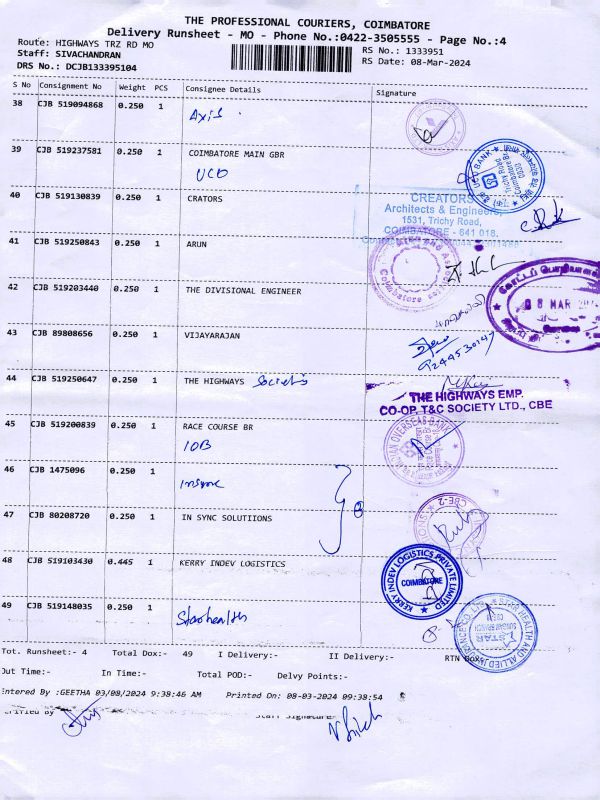 THE PROFESSIONAL COURIERS, COIMBATORE
Delivery Runsheet - MO - Phone No.:0422-3505555 - Page No.:4
Route: HIGHWAYS TRZ RD MO
RS No.: 1333951
Staff: SIVACHANDRAN
RS Date: 08-Mar-2024
DRS No.: DCJB133395104
S No Consignment No Weight PCS Consignee Details Signature
38 CJB 519094868 0.250 1 Axis
39 CJB 519237581 0.250 1 COIMBATORE MAIN GBR
UCO
UCO BANK
Trichy Road
40 CJB 519130839 0.250 1 CRATORS
CREATORS
Architects & Engineers,
1531, Trichy Road,
COIMBATORE - 641 018.
41 CJB 519250843 0.250 1 ARUN
Coimbatore
42 CJB 519203440 0.250 1 THE DIVISIONAL ENGINEER
08 MAR
43 CJB 89808656 0.250 1 VIJAYARAJAN
9244530147
44 CJB 519250647 0.250 1 THE HIGHWAYS
THE HIGHWAYS EMP.
CO-OP. T&C SOCIETY LTD., CBE
45 CJB 519200839 0.250 1 RACE COURSE BR
IOB
OVERSEAS BANK
46 CJB 1475096 0.250 1 insync
47 CJB 80208720 0.250 1 IN SYNC SOLUTIIONS
CBE-2
48 CJB 519103430 0.445 1 KERRY INDEV LOGISTICS
KERRY INDEV LOGISTICS PRIVATE LIMITED
COIMBATORE
49 CJB 519148035 0.250 1 Starhealth
STAR HEALTH AND ALLIED INSURANCE CO. LTD.
STAR
Tot. Runsheet:- 4 Total Dox:- 49 I Delivery:- II Delivery:- RTN
Out Time:- In Time:- Total POD:- Delvy Points:-
Entered By :GEETHA 03/08/2024 9:38:46 AM Printed On: 08-03-2024 09:38:54
Verified By Staff Signature